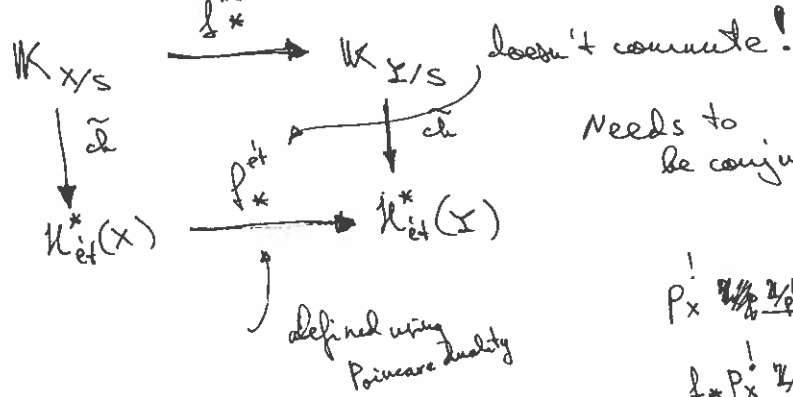 f_*
𝕂_{X/S} → 𝕂_{Y/S} doesn't commute!
c̃h c̃h
Needs to
be conju
f_*^{ét}
H^*_{ét}(X) → H^*_{ét}(Y)
defined using
Poincare duality
p_X^!
f_* p_X^!